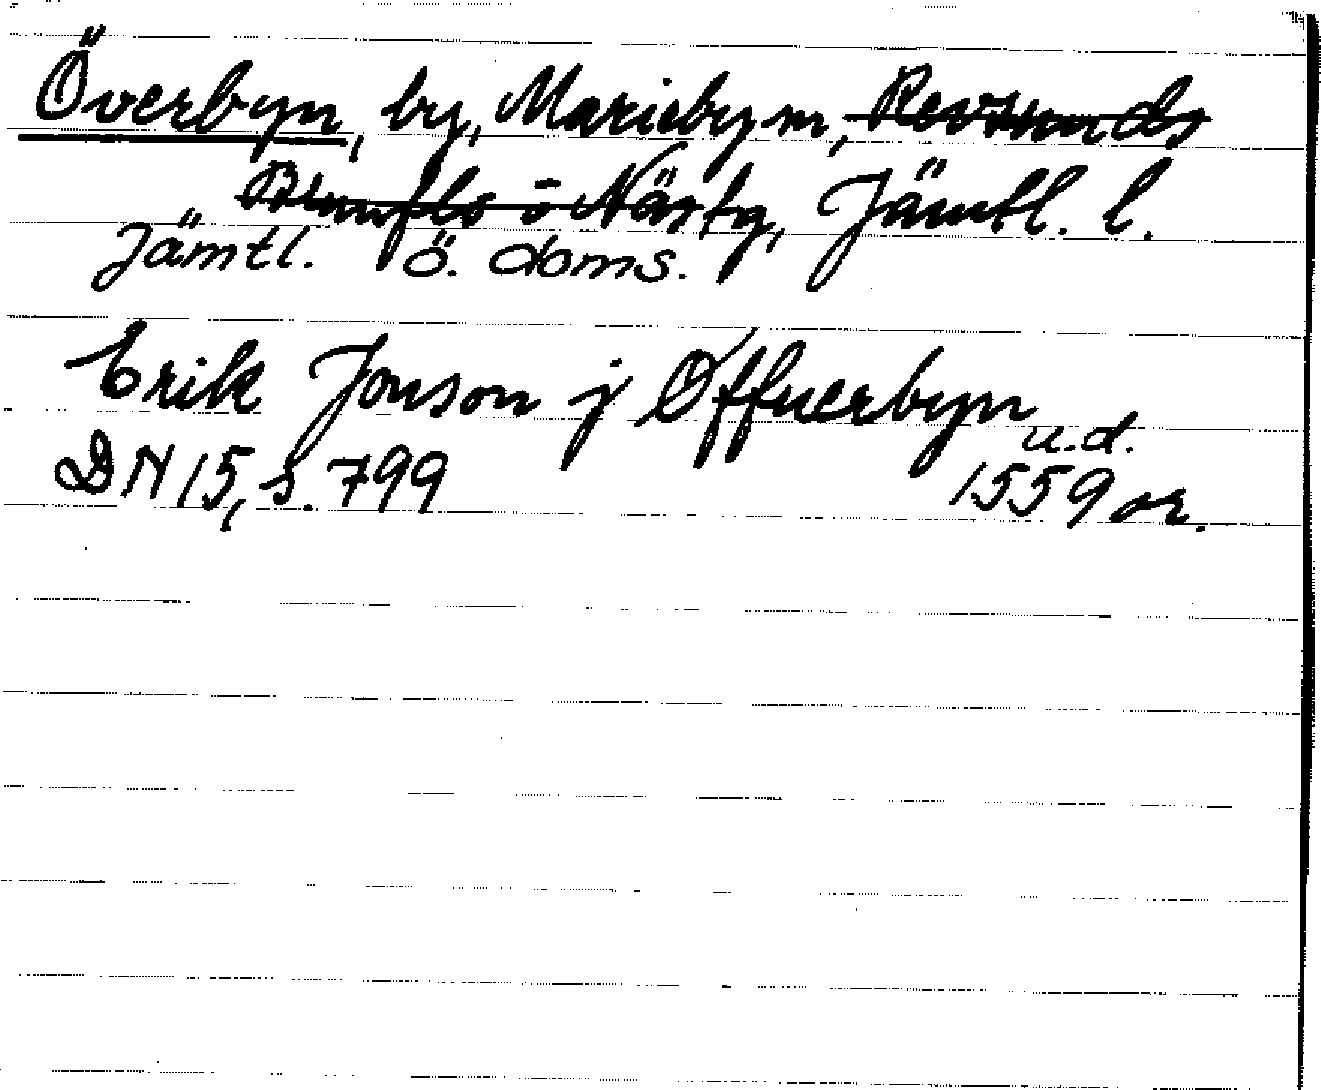 Överbyn, by, Marieby sn, Revsunds
Brunflo o Näs tg, Jämtl. l.
Jämtl. ö. doms.
Erik Jonson j Øffuerbyn
u.d.
DN 15, s. 799 1559 or.